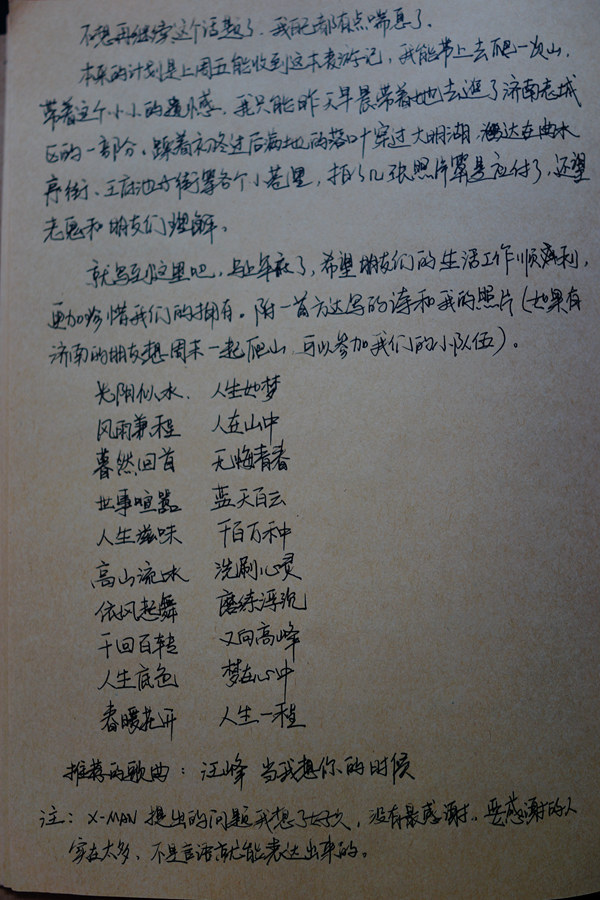 不想再继续这个话题了，我自己都有点喘息了.
本来的计划是上周五能收到这本表游记，我能带上去爬一次山.
带着这个小小的遗憾，我只能昨天早晨带着她去逛了济南老城
区的一部分、踩着初冬过后满地的落叶穿过大明湖、到达在曲水
亭街、王府池子街等各个小巷里，拍了几张照片算是应付了，还望
老愚和朋友们理解。
就写到这里吧，马上年底了，希望朋友们的生活工作顺顺利利，
更加珍惜我们的拥有。附一首方达写的诗和我的照片（如果有
济南的朋友想周末一起爬山 可以参加我们的小队伍）。
光阴似水. 人生如梦
风雨兼程 人在山中
暮然回首 无悔青春
世事喧嚣 蓝天白云
人生滋味 千百万种
高山流水 洗刷心灵
依风起舞 磨练浮沉
千回百转 又向高峰
人生底色 梦在心中
春暖花开 人生一程
推荐的歌曲：汪峰 当我想你的时候
注：X-MAN 提出的问题我想了好久，没有最感谢，要感谢的人
实在太多、不是言语就能表达出来的。